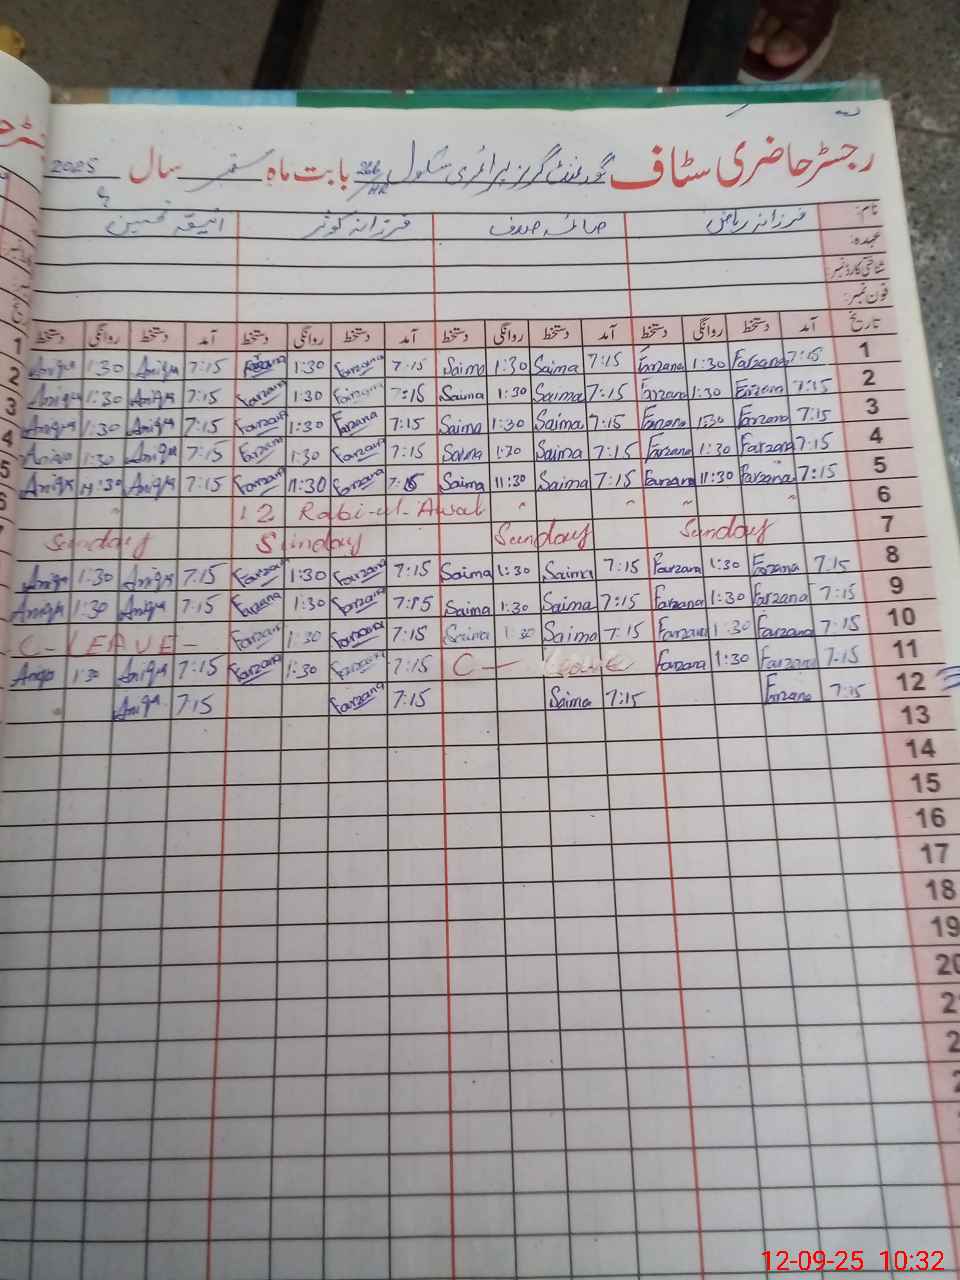 رجسٹر حاضری سٹاف گورنمنٹ گرلز پرائمری سکول 266/HR بابت ماہ ستمبر سال 2025
نام: فرزانہ ریاض صائمہ صدف فرزانہ کوثر انیقہ تحسین
عہدہ:
شناختی کارڈ نمبر:
فون نمبر:
تاریخ آمد دستخط روانگی دستخط آمد دستخط روانگی دستخط آمد دستخط روانگی دستخط آمد دستخط روانگی دستخط
1 Aniqa 1:30 Aniqa 7:15 Farzana 1:30 Farzana 7:15 Saima 1:30 Saima 7:15 Farzana 1:30 Farzana 7:15 1
2 Aniqa 1:30 Aniqa 7:15 Farzana 1:30 Farzana 7:15 Saima 1:30 Saima 7:15 Farzana 1:30 Farzana 7:15 2
3 Aniqa 1:30 Aniqa 7:15 Farzana 1:30 Farzana 7:15 Saima 1:30 Saima 7:15 Farzana 1:30 Farzana 7:15 3
4 Aniqa 1:30 Aniqa 7:15 Farzana 1:30 Farzana 7:15 Saima 1:30 Saima 7:15 Farzana 1:30 Farzana 7:15 4
5 Aniqa 11:30 Aniqa 7:15 Farzana 11:30 Farzana 7:15 Saima 11:30 Saima 7:15 Farzana 11:30 Farzana 7:15 5
6 12 Rabi-ul-Awal 6
Sunday Sunday Sunday Sunday 7
Aniqa 1:30 Aniqa 7:15 Farzana 1:30 Farzana 7:15 Saima 1:30 Saima 7:15 Farzana 1:30 Farzana 7:15 8
Aniqa 1:30 Aniqa 7:15 Farzana 1:30 Farzana 7:15 Saima 1:30 Saima 7:15 Farzana 1:30 Farzana 7:15 9
C-LEAVE- Farzana 1:30 Farzana 7:15 Saima 1:30 Saima 7:15 Farzana 1:30 Farzana 7:15 10
Aniqa 1:30 Aniqa 7:15 Farzana 1:30 Farzana 7:15 C- Leave Farzana 1:30 Farzana 7:15 11
Aniqa 7:15 Farzana 7:15 Saima 7:15 Farzana 7:15 12
13
14
15
16
17
18
19
20
12-09-25 10:32